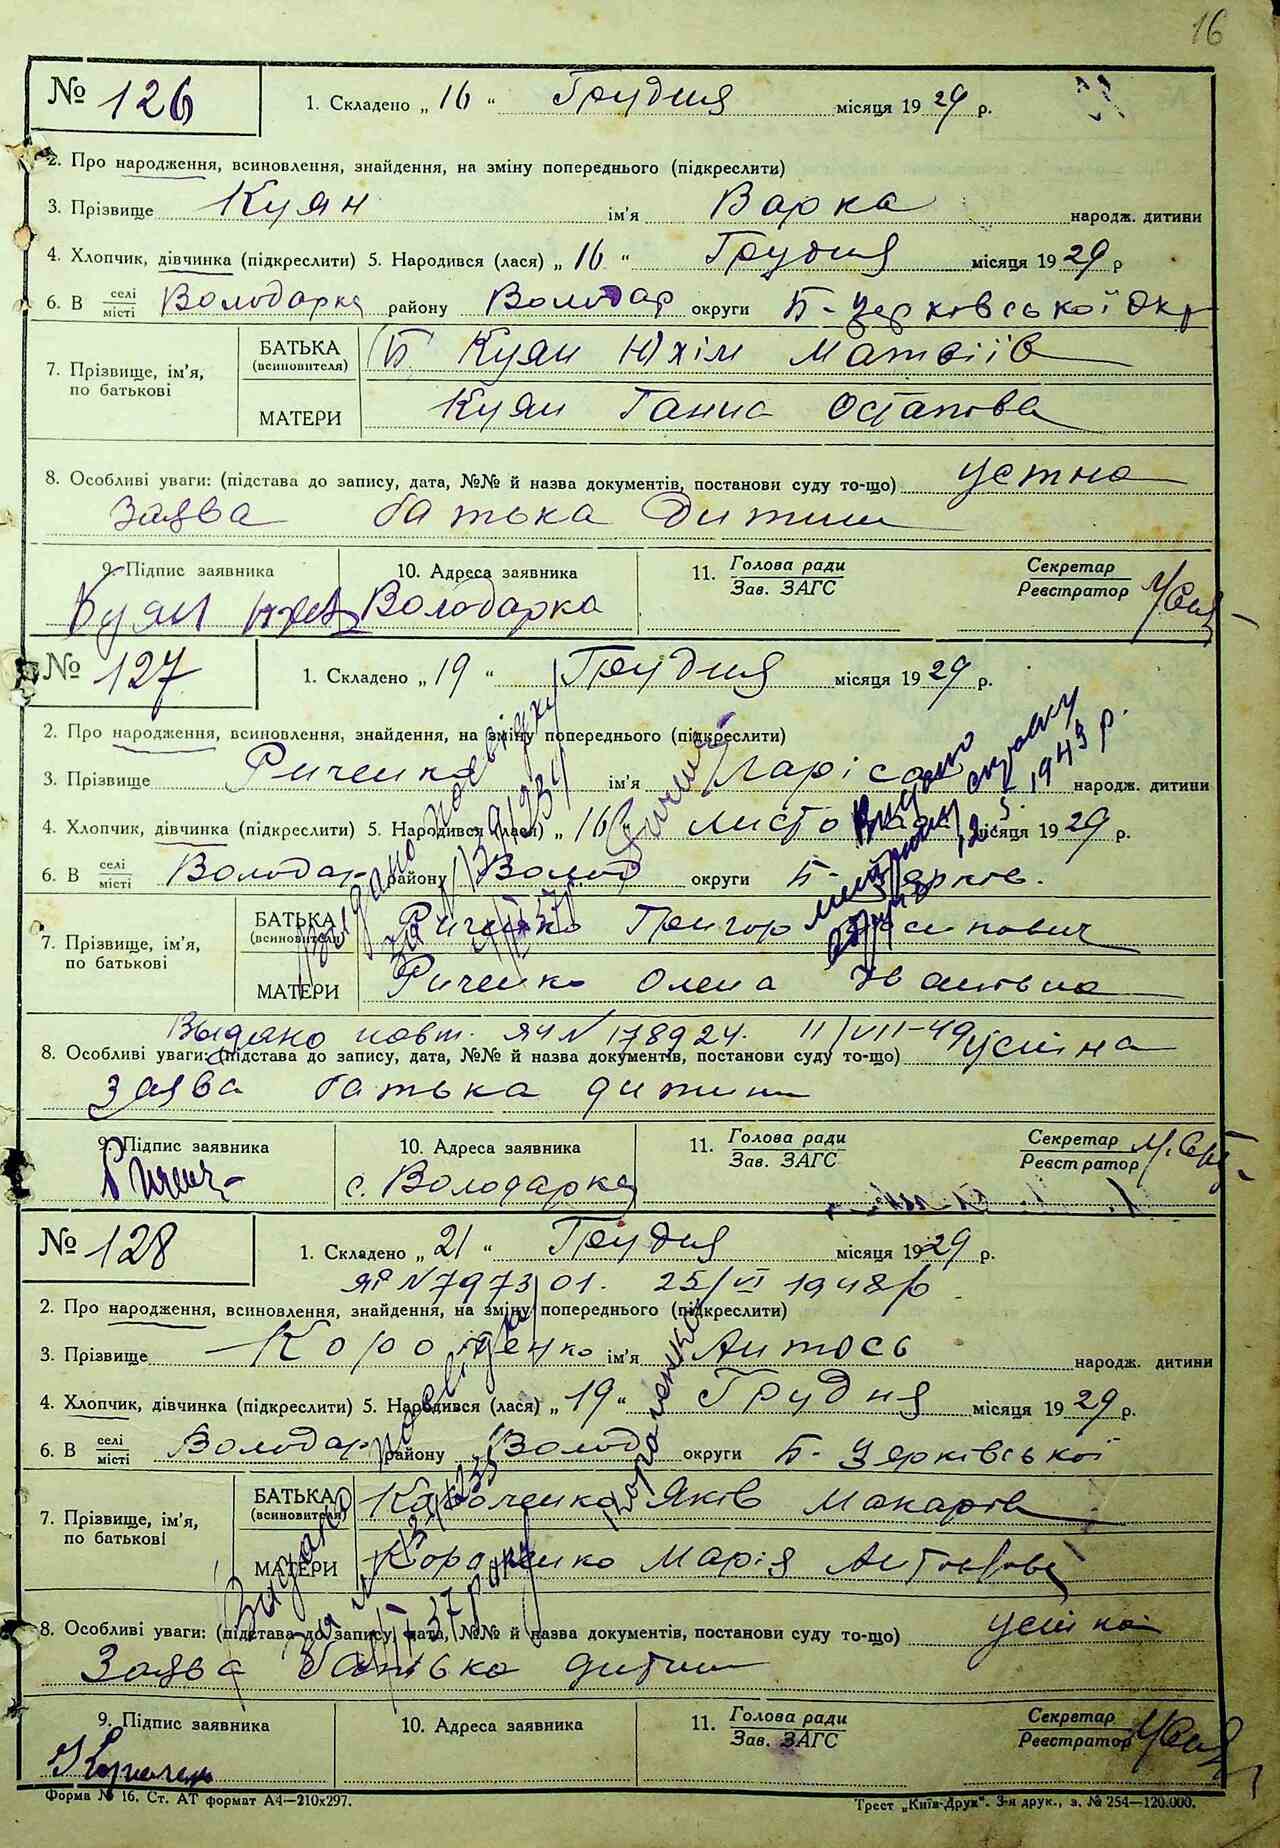 16
№ 126
1. Складено „ 16 “ Грудня місяця 1929 р.
2. Про народження, всиновлення, знайдення, на зміну попереднього (підкреслити)
3. Прізвище Куян ім'я Варка народж. дитини
4. Хлопчик, дівчинка (підкреслити) 5. Народився (лася) „ 16 “ Грудня місяця 1929 р
6. В селі місті Володарка району Володар округи Б-Церковської Окр
7. Прізвище, ім'я, по батькові
БАТЬКА (всиновителя) Б. Куян Юхім Матвіїв
МАТЕРИ Куян Ганна Остапова
8. Особливі уваги: (підстава до запису, дата, №№ й назва документів, постанови суду то-що) устна
Заява батька дитини
9. Підпис заявника 10. Адреса заявника 11. Голова ради Зав. ЗАГС Секретар Реєстратор
Куян Володарка
№ 127
1. Складено „ 19 “ Грудня місяця 1929 р.
2. Про народження, всиновлення, знайдення, на зміну попереднього (підкреслити)
3. Прізвище Риченко ім'я Ларіса народж. дитини
4. Хлопчик, дівчинка (підкреслити) 5. Народився (лася) „ 16 листопада місяця 1929 р.
6. В селі місті Володар району Волод округи Б-Церков.
7. Прізвище, ім'я, по батькові
БАТЬКА (всиновителя) Риченко Григор Осипович
МАТЕРИ Риченко Олена Івановна
Видано
1943 р.
Выдано повт. ЯЧ № 178924. 11/VII-49
8. Особливі уваги: (підстава до запису, дата, №№ й назва документів, постанови суду то-що) устна
Заява батька дитини
9. Підпис заявника 10. Адреса заявника 11. Голова ради Зав. ЗАГС Секретар Реєстратор
с. Володарка
№ 128
1. Складено „ 21 “ Грудня місяця 1929 р.
№ 797301. 25/VI 1948 р
2. Про народження, всиновлення, знайдення, на зміну попереднього (підкреслити)
3. Прізвище ім'я Антось народж. дитини
4. Хлопчик, дівчинка (підкреслити) 5. Народився (лася) „ 19 “ Грудня місяця 1929 р.
6. В селі місті Володар району Волод округи Б-Церківської
7. Прізвище, ім'я, по батькові
БАТЬКА (всиновителя) Яків Макарів
МАТЕРИ Марія
Видано посвідку
37 року
8. Особливі уваги: (підстава до запису, дата, №№ й назва документів, постанови суду то-що) устна
Заява батька дитини
9. Підпис заявника 10. Адреса заявника 11. Голова ради Зав. ЗАГС Секретар Реєстратор
Форма № 16. Ст. АТ формат А4—210х297.
Трест „Київ-Друк“. 3-я друк., з. № 254—120.000.